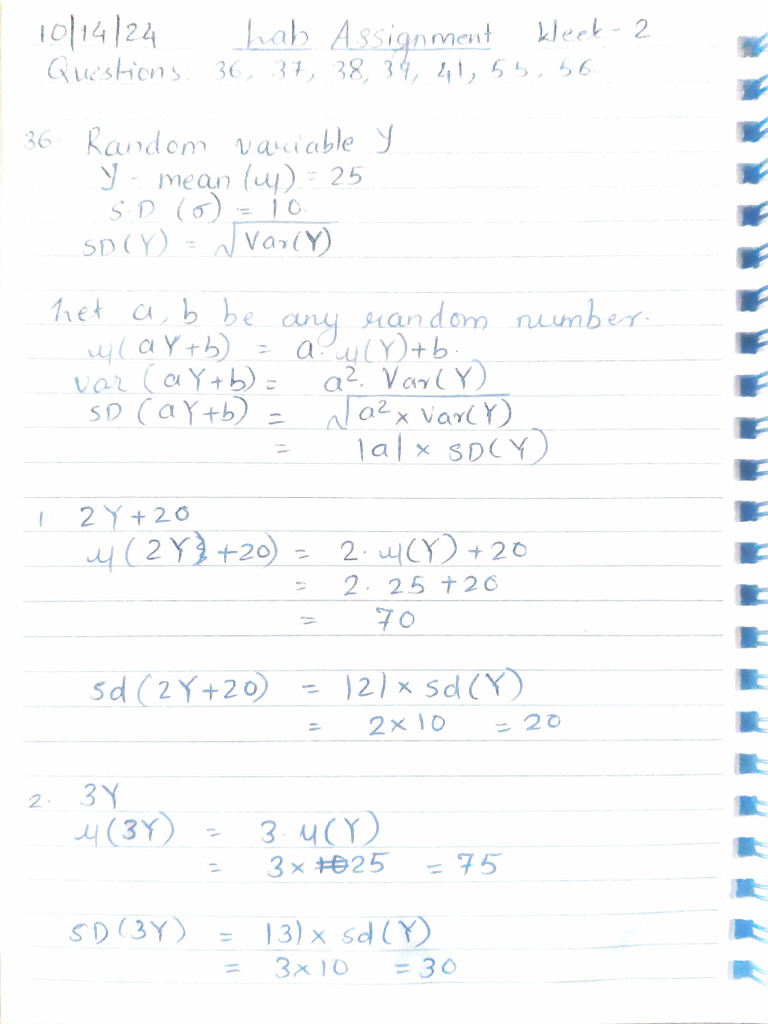 10/14/24 Lab Assignment Week - 2
Questions: 36, 37, 38, 39, 41, 55, 56.
36. Random variable Y
Y - mean (μ) = 25
S.D (σ) = 10.
SD(Y) = √Var(Y)
Let a, b be any random number.
μ(aY+b) = a. μ(Y)+b.
var (aY+b) = a². Var(Y)
SD (aY+b) = √a² × Var(Y)
= |a| × SD(Y)
1. 2Y+20
μ(2Y+20) = 2. μ(Y) + 20
= 2. 25 +20
= 70
sd (2Y+20) = |2| × sd(Y)
= 2×10 = 20
2. 3Y
μ(3Y) = 3. μ(Y)
= 3×25 = 75
SD(3Y) = |3| × sd(Y)
= 3×10 = 30